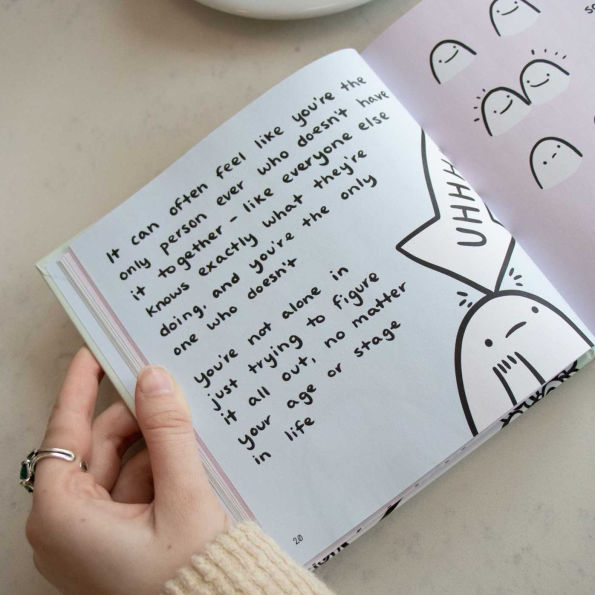 It can often feel like you're the
only person ever who doesn't have
it together - like everyone else
knows exactly what they're
doing, and you're the only
one who doesn't
you're not alone in
just trying to figure
it all out, no matter
your age or stage
in life
20